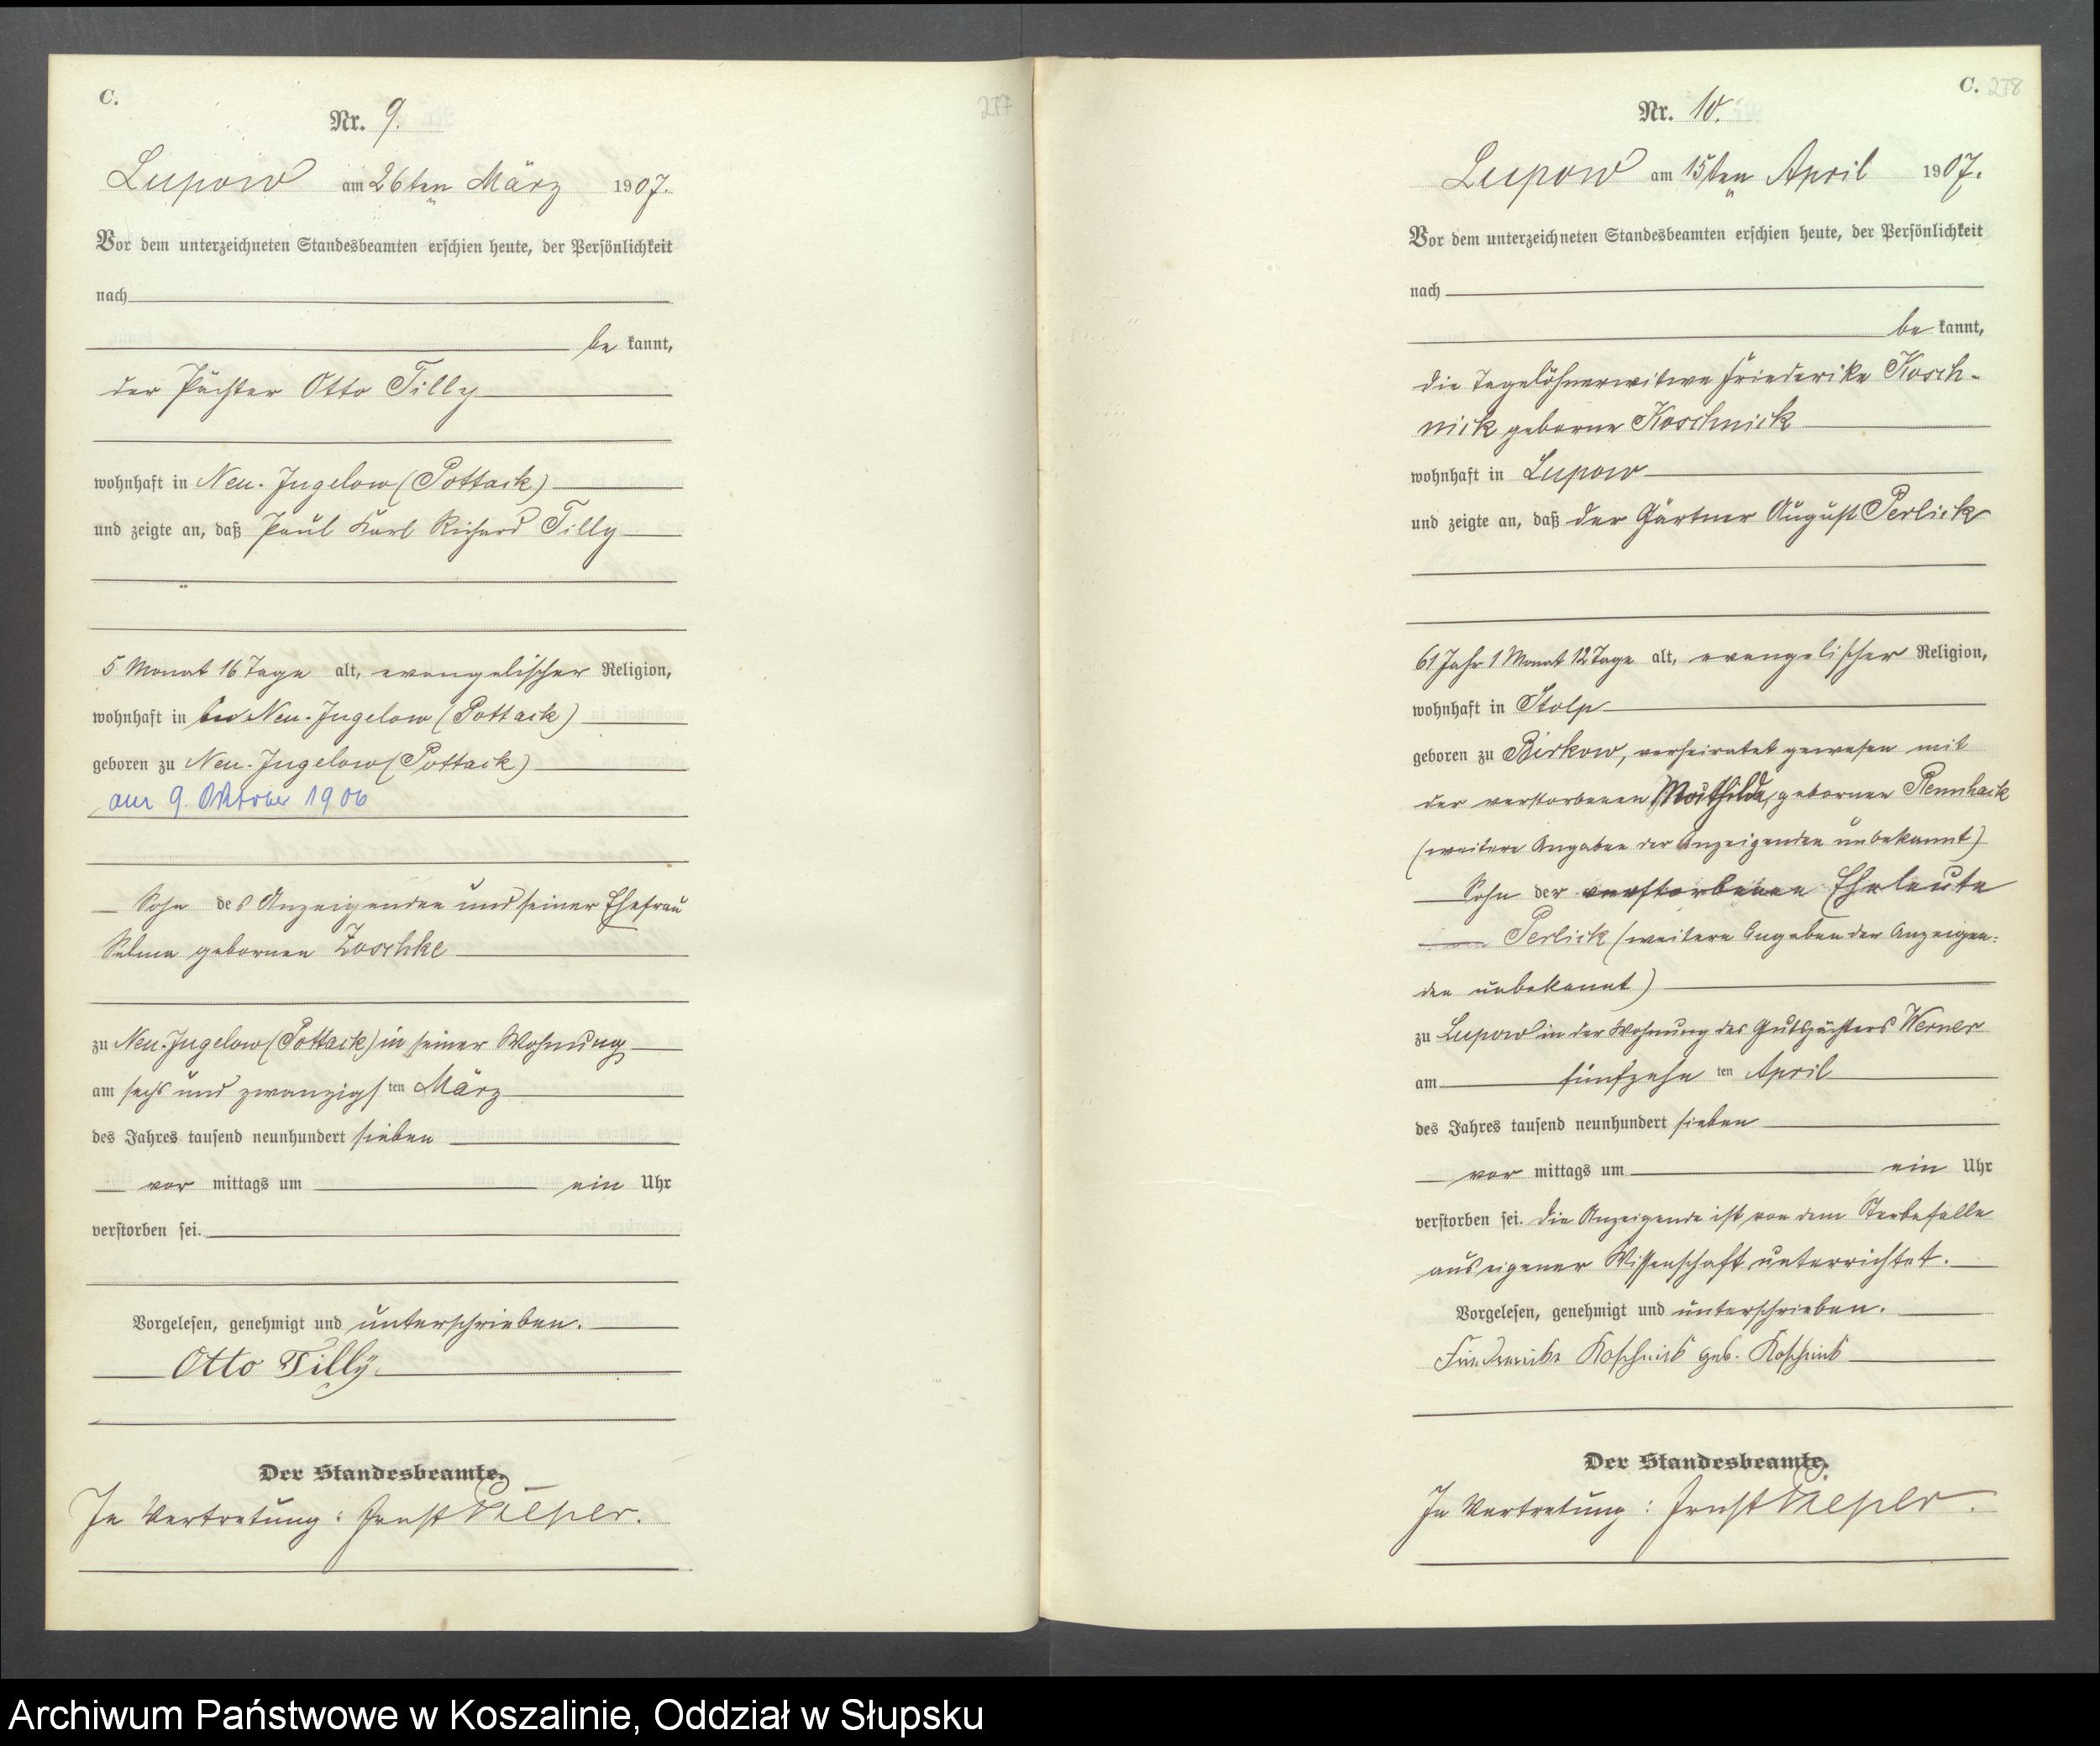 C.
277
Nr. 9.
Lupow am 26ten März 1907.
Vor dem unterzeichneten Standesbeamten erschien heute, der Persönlichkeit
nach
be kannt,
der Pächter Otto Tilly
wohnhaft in Neu-Jugelow (Pottack)
und zeigte an, daß Paul Karl Richard Tilly
5 Monat 16 Tage alt, evangelischer Religion,
wohnhaft in Neu-Jugelow (Pottack)
geboren zu Neu-Jugelow (Pottack)
am 9. Oktober 1906
Sohn des Anzeigenden und seiner Ehefrau
Selma gebornen Zoschke
zu Neu-Jugelow (Pottack) in seiner Wohnung
am sechs und zwanzigsten März
des Jahres tausend neunhundert sieben
vor mittags um ein Uhr
verstorben sei.
Vorgelesen, genehmigt und unterschrieben.
Otto Tilly
Der Standesbeamte.
In Vertretung: Ernst Pieper.
C. 278
Nr. 10.
Lupow am 15ten April 1907.
Vor dem unterzeichneten Standesbeamten erschien heute, der Persönlichkeit
nach
be kannt,
die Tagelöhnerwitwe Friederike Kosch-
nick geborne Koschnick
wohnhaft in Lupow
und zeigte an, daß der Gärtner August Perlick
61 Jahr 1 Monat 12 Tage alt, evangelischer Religion,
wohnhaft in Stolp
geboren zu Birkow, verheiratet gewesen mit
der verstorbenen Mathilde, gebornen Rennhack
(weitere Angaben der Anzeigenden unbekannt)
Sohn der verstorbenen Eheleute
Perlick (weitere Angaben der Anzeigen-
den unbekannt)
zu Lupow in der Wohnung des Gutspächters Werner
am fünfzehn ten April
des Jahres tausend neunhundert sieben
vor mittags um ein Uhr
verstorben sei. Die Anzeigende ist von dem Sterbefalle
aus eigener Wissenschaft unterrichtet.
Vorgelesen, genehmigt und unterschrieben.
Friederike Koschnick geb. Koschnick
Der Standesbeamte.
In Vertretung: Ernst Pieper.
Archiwum Państwowe w Koszalinie, Oddział w Słupsku